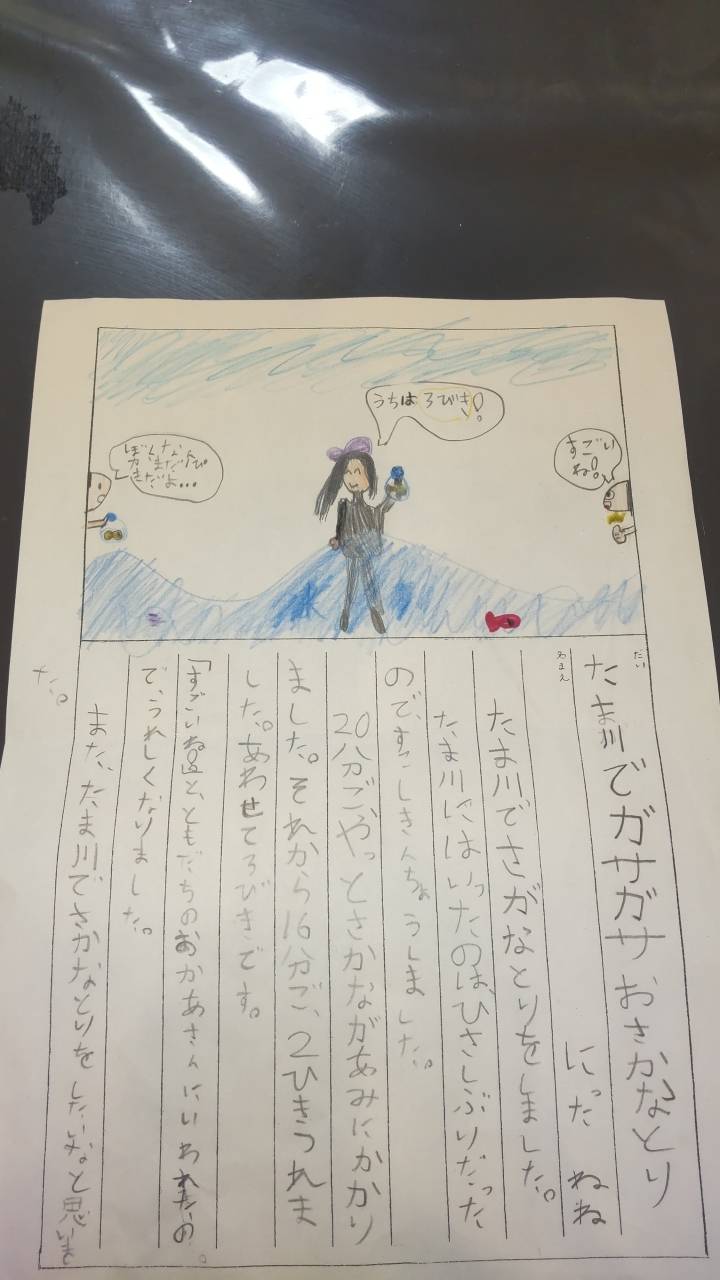 うちは3びき!
すごいね!
だい
たま川でガサガサおさかなとり
なまえ
にった ねね
たま川でさかなとりをしました。
たま川にはいったのは、ひさしぶりだった
ので、すこしきんちょうしました。
20分ご、やっとさかながあみにかかり
ました。それから16分ご、2ひきつれま
した。あわせて3びきです。
「すごいね!」と、ともだちのおかあさんにいわれたの
で、うれしくなりました。
また、たま川でさかなとりをしたいなと思いまし
た。